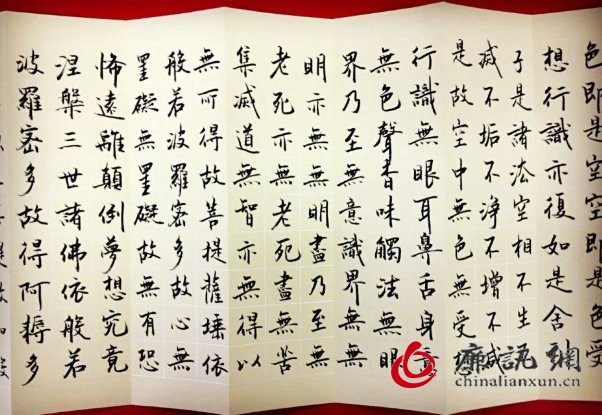 色即是空空即是色受
想行識亦復如是舍
子是諸法空相不生不
滅不垢不淨不增不減
是故空中無色無受想
行識無眼耳鼻舌身意
無色聲香味觸法無眼
界乃至無意識界無無
明亦無無明盡乃至無
老死亦無老死盡無苦
集滅道無智亦無得以
無所得故菩提薩埵依
般若波羅密多故心無
罣礙無罣礙故無有恐
怖遠離顛倒夢想究竟
涅槃三世諸佛依般若
波羅密多故得阿耨多
廉訊網
chinalianxun.cn